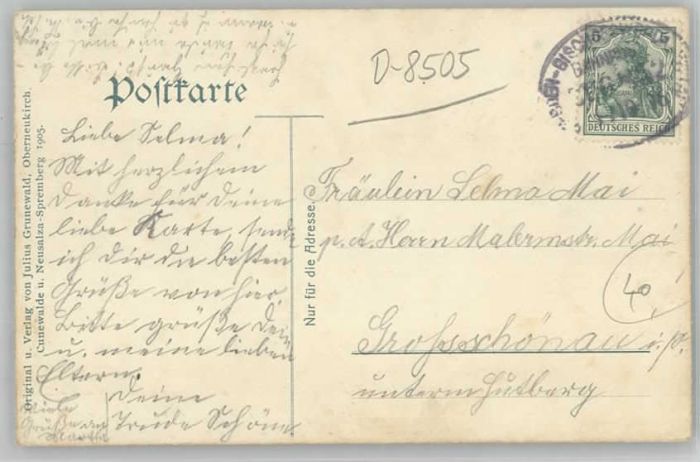 D-8505
Postkarte
5 5
DEUTSCHES REICH
Liebe Selma!
Mit herzlichem
Danke für deine
liebe Karte, send
ich dir die besten
Grüße von hier.
Bitte grüße dein
u. meine lieben
Eltern.
Deine
Trude Schöne
Viele
Grüße an
Martha
Nur für die Adresse.
Fräulein Selma Mai
p. A. Herrn Malermstr. Mai
40
Grossschönau i. S.
unterm Hutberg
Original u. Verlag von Julius Grunewald, Oberneukirch,
Cunewalde u. Neusalza-Spremberg 1905.